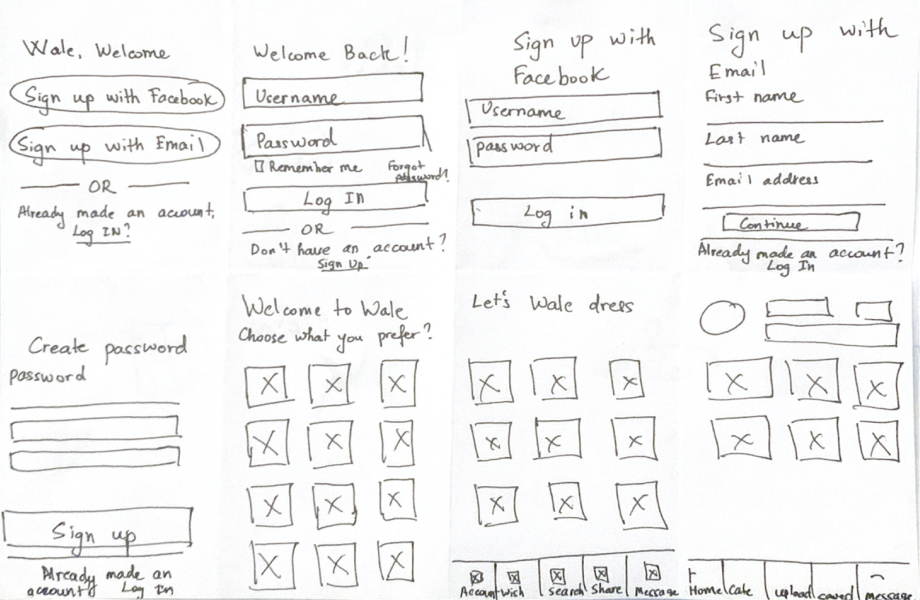 Wale, Welcome
Sign up with Facebook
Sign up with Email
OR
Already made an account,
Log IN?
Welcome Back!
Username
Password
Remember me
Forgot
password?
Log In
OR
Don't have an account?
Sign Up
Sign up with
Facebook
Username
password
Log in
Sign up with
Email
First name
Last name
Email address
Continue
Already made an account?
Log In
Create password
password
Sign up
Already made an
account? Log In
Welcome to Wale
Choose what you prefer?
Let's Wale dress
Account Wish Search Share Message
Home Cate upload saved message